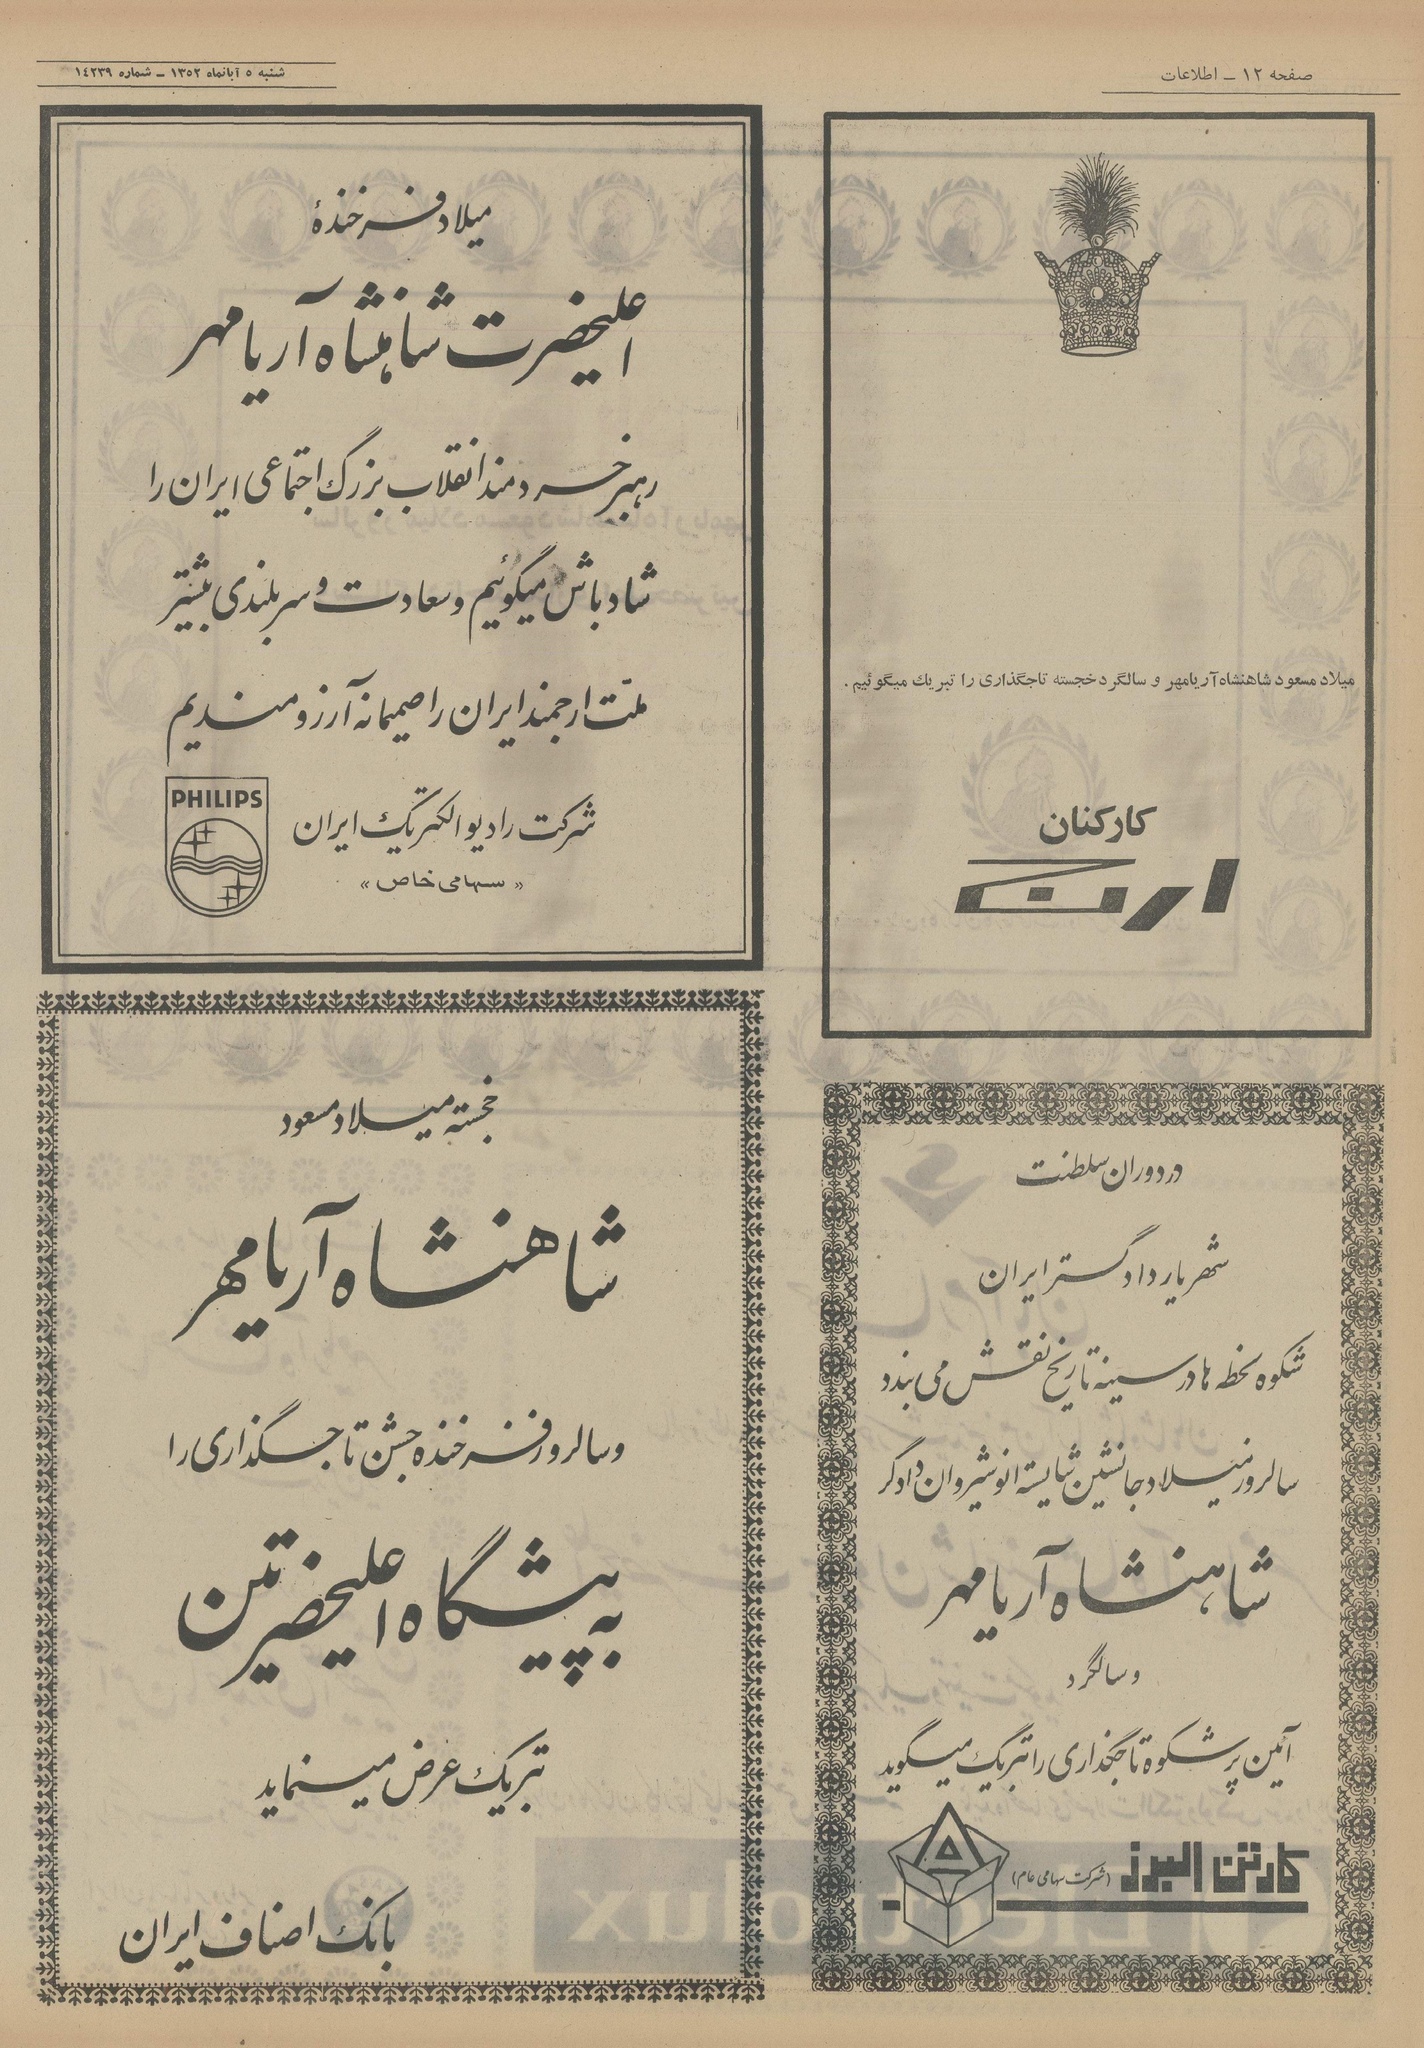 صفحه ۱۲ ــ اطلاعات
شنبه ۵ آبانماه ۱۳۵۲ ــ شماره ۱٤۲۳۹
میلاد مسعود شاهنشاه آریامهر و سالگرد خجسته تاجگذاری را تبریك میگوئیم .
کارکنان
ارج
میلاد فرخندهٔ
اعلیحضرت شاهنشاه آریامهر
رهبر خردمند انقلاب بزرگ اجتماعی ایران را
شادباش میگوئیم و سعادت و سربلندی بیشتر
ملّت ارجمند ایران را صمیمانه آرزومندیم
PHILIPS
شرکت رادیو الکتریک ایران
« سهامی خاص »
در دوران سلطنت
شهریار دادگستر ایران
شکوه لحظه ها در سینه تاریخ نقش می بندد
سالروز میلاد جانشین شایسته انوشیروان دادگر
شاهنشاه آریامهر
و سالگرد
آئین پرشکوه تاجگذاری را تبریک میگوید
کارتن البرز (شرکت سهامی عام)
خجسته میلاد مسعود
شاهنشاه آریامهر
و سالروز فرخنده جشن تاجگذاری را
به پیشگاه اعلیحضرتین
تبریک عرض مینماید
بانک اصناف ایران